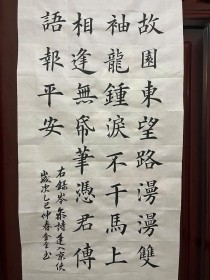 故園東望路漫漫雙
袖龍鍾淚不干馬上
相逢無帋筆憑君傳
語報平安
右錄岑參詩逢入京使
歲次乙巳仲春金玉書